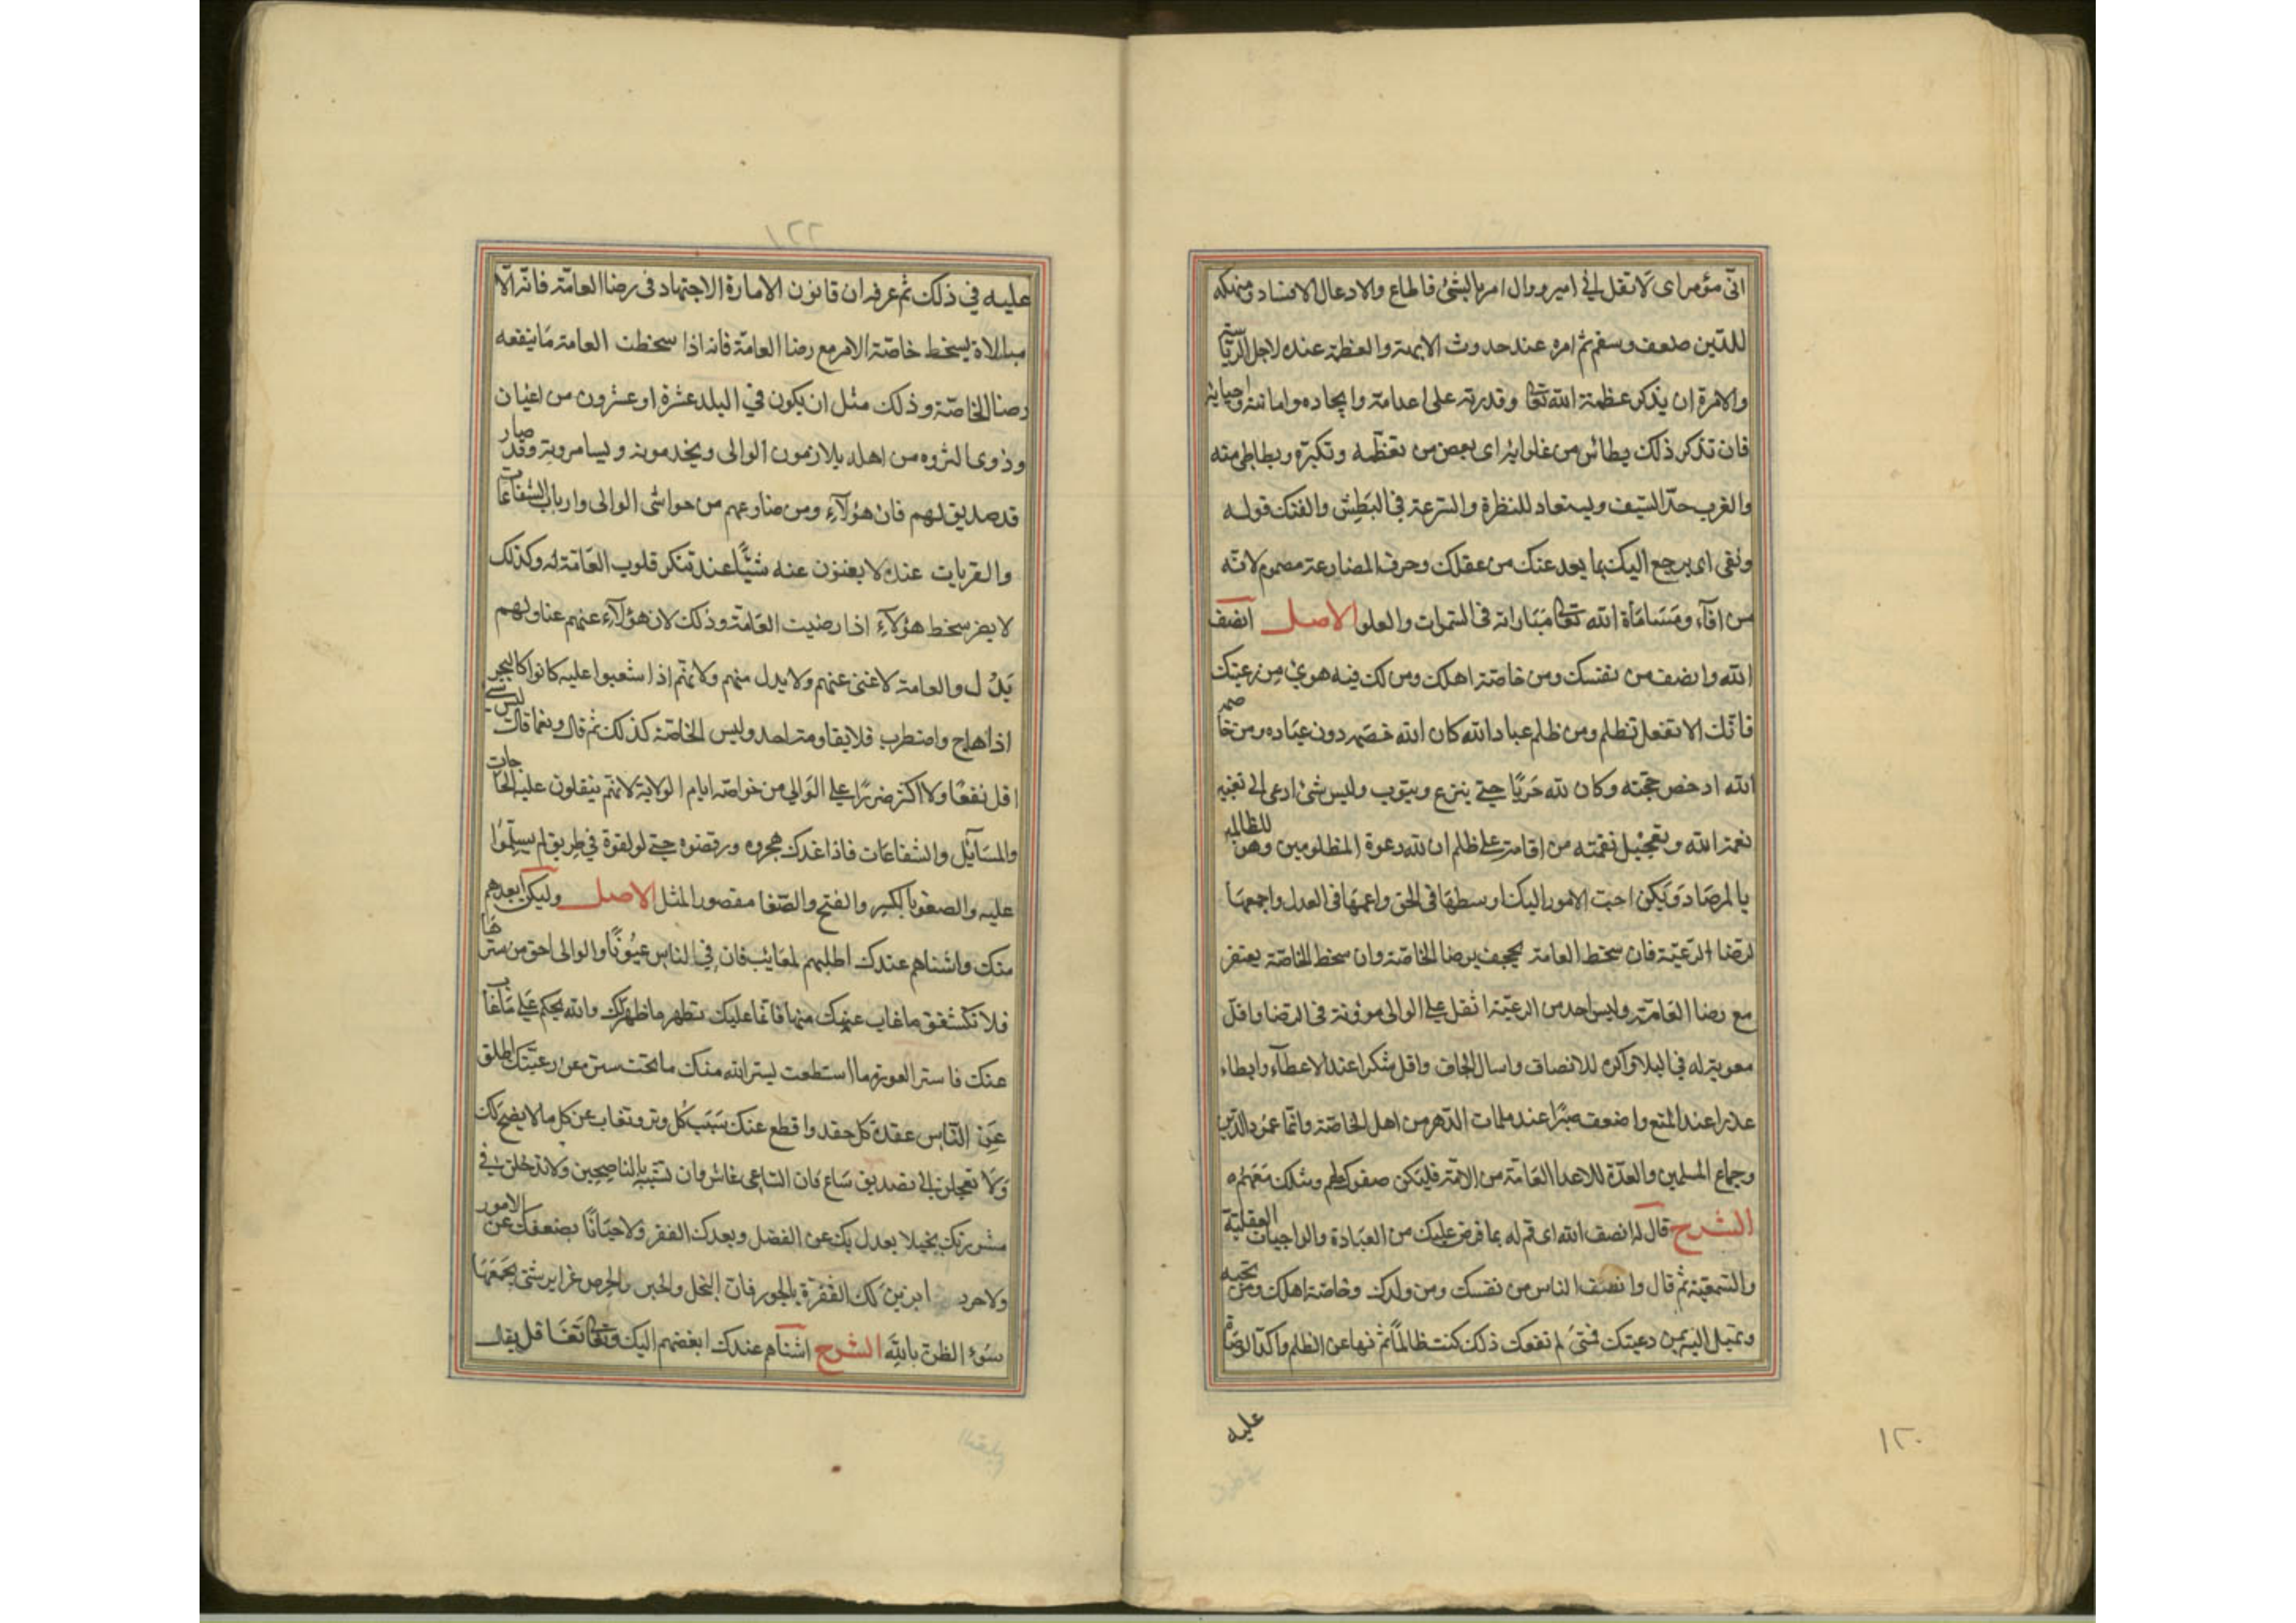 انّى مؤمر اى لا تقل انى امير ووال امر بالشئ فاطاع والادعال الافساد ومنهكه
للدّين ضعف وسقم ثم امره عند حدوث الابهة والعظمة عنده لاجل الرياسة
والامرة ان يذكر عظمة الله تعالى وقدرته على اعدامه وايجاده واماتته واحيائه
فان تذكر ذلك يطائن من غلوائه اى بغض من تعظّمه وتكبره ويطاطى منه
والغرب حدّ السّيف ويستعاد للنظرة والسّرعة في البَطِش والفتك قوله
ونفى اى يرجع اليك بما بعد عنك من عقلك وحرف المضارعة مضموم لانّه
من افآء ومَسَاماة الله تعالى مبَاراته في السّموات والعلو الاصل انصف
الله وانصف من نفسك ومن خاصّة اهلك ومن لك فيه هوى مِن رعيتك
فانّك الا تفعل تظلم ومن ظلم عباد الله كان الله خصمه دون عبَاده ومن خاصمه
الله ادحض حجّته وكان لله حَربًا حتى ينزع ويتوب وليس شئ ادعى الى تغيير
نعمة الله وتعجيل نقمته من اقامة على ظلم ان لله دعوة المظلومين وهو للظالمين
بالمرصَاد وَليكن احبّ الامور اليك اوسطهَا في الحق واعمهَا في العدل واجمعهَا
لرضا الرّعيّة فان سخط العامة يجحف برضا الخاصّة وان سخط الخاصّة يعتفر
مع رضا العَامّة وليس احد من الرعيّة اثقل على الوالى مؤونة في الرّضا واقل
معوىة له في البلا واكره للانصاف واسال بالحاف واقل شكرا عند الاعطآء وابطاء
عذرا عند المنع واضعف صبرًا عند ملمات الدّهر من اهل الخاصّة وانّما عمُود الدّين
وجماع المسلمين والعدّة للاعدا العَامّة من الامّة فليَكن صفوك لهم وميلك مَعَهُم ه
الشرح قال له انصف الله اى قم له بما فرض عليك من العبَادة والواجبات العقليّة
والسّمعيّة ثم قال وانصف الناس من نفسك ومن ولدك وخاصّة اهلك ومن تحبه
وتميل اليه من رعيتك فمتىَ لم تفعل ذلك كنت ظالمًا ثم نهاه عن الظلم واكّد الوصَاة
عليه
١٢٠
١٢٢
عليه في ذلك ثم عرفه ان قانون الامارة الاجتهاد فى رضا العامّة فانّه لا
مبالاة بسخط خاصّة الامير مع رضا العامّة فانه اذا سخطت العامة مَا ينفعه
رضا الخاصّة وذلك مثل ان يكون في البلد عشرة او عشرون من اغيان
وذوى الثروه من اهله يلازمون الوالى ويخدمونه ويسامرونه وقد صار
كالصديق لهم فان هؤلآءِ ومن ضارعهم من حواشى الوالى وارباب الشفاعات
والقربات عنده لا يغنون عنه شيًّا عند تنكر قلوب العَامّة له وكذلك
لا يضر سخط هؤلآءِ اذا رضيت العَامّة وذلك لان هؤلآءِ عنهم غنا ولهم
بَدُل والعامة لا غنى عنهم ولا بدل منهم ولانهّم اذا شعبوا عليه كانوا كالبحر
اذا هاج واضطرب فلا يقاومه احد وليس الخاصّة كذلك ثم قال ونعما قال ليس شئ
اقل نفعًا ولا اكثر ضررًا على الوَالي من خواصّه ايام الولاية لانّهم يثقلون عليه بالحاجات
والمسَآئِل والشفاعَات فاذا عُزل هجروه ورفضوه حتى لو لقوه في طريق لم يسلِّموُا
عليه والصغو بالكسِر والفتح والصّغا مقصور المثل الاصل وليكن ابعدهم
منك واشناهم عندك اطلبهم لمعَائب فان فِي الناس عيُوبًا والوالى احق من سترهَا
فلا تكشفنّ ما غاب عنك منها فانما عليك تطهير ما ظهر لك والله يحكم عَلى مَا غاب
عنك فاستر العورة ما استطعت يستر الله منك ما تحب ستره من رعيّتك اطلق
عَنِ النّاس عقدة كل حقد واقطع عنك سَبَبَ كُل وتر وتغاب عن كل ما لا يضح لك
وَلا تعجلن الى تصديق سَاع فان السّاعى غاش وان تشبّه بالناصِحين ولا تدخلن فى
مشورتك بخيلا يعدل بك عن الفضل ويعدك الفقر ولا جبَانًا يضعفك عن الامور
ولا حريصا يزين لك الشره بالجور فان البخل والجبن والحرص غرايز شتى يجَمعَهَا
سُوء الظن باللهِ الشرح اشنأهم عندك ابغضهم اليك وتغاب تغافل يقال